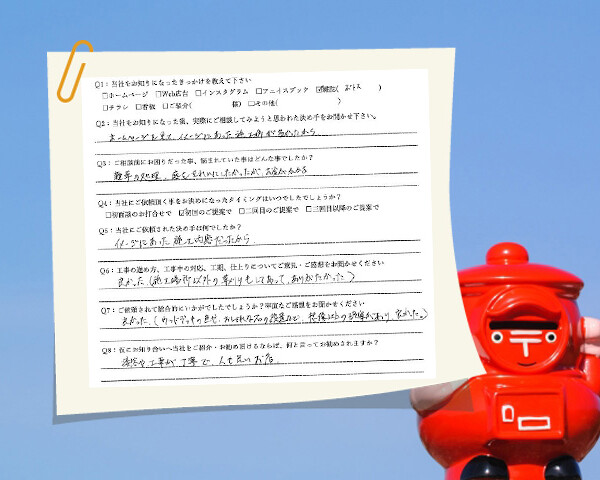 Q1：当社をお知りになったきっかけを教えて下さい
□ホームページ □Web広告 □インスタグラム □フェイスブック ☑雑誌( ポトス )
□チラシ □看板 □ご紹介( 様) □その他( )
Q2：当社をお知りになった後、実際にご相談してみようと思われた決め手をお聞かせ下さい。
ホームページを見て、イメージにあった施工例があったから
Q3：ご相談前にお困りだった事、悩まれていた事はどんな事でしたか？
雑草の処理、庭をきれいにしたかったが、お金がかかる
Q4：当社にご依頼頂く事をお決めになったタイミングはいつでしたでしょうか？
□初面談のお打合せで ☑初回のご提案で □二回目のご提案で □三回目以降のご提案で
Q5：当社にご依頼された決め手は何でしたか？
イメージにあった施工内容だったから
Q6：工事の進め方、工事中の対応、工期、仕上りについてご意見・ご感想をお聞かせください
良かった（施工場所以外の草刈りもしてあって、ありがたかった）
Q7：ご依頼されて総合的にいかがでしたでしょうか？率直なご感想をお聞かせください
良かった。（ウッドデッキの色や、おしゃれな石の設置など、想像以上の があり、良かった。）
Q8：仮にお知り合いへ当社をご紹介・お勧め頂けるならば、何と言ってお勧めされますか？
接客や工事が丁寧で、人も良いお店